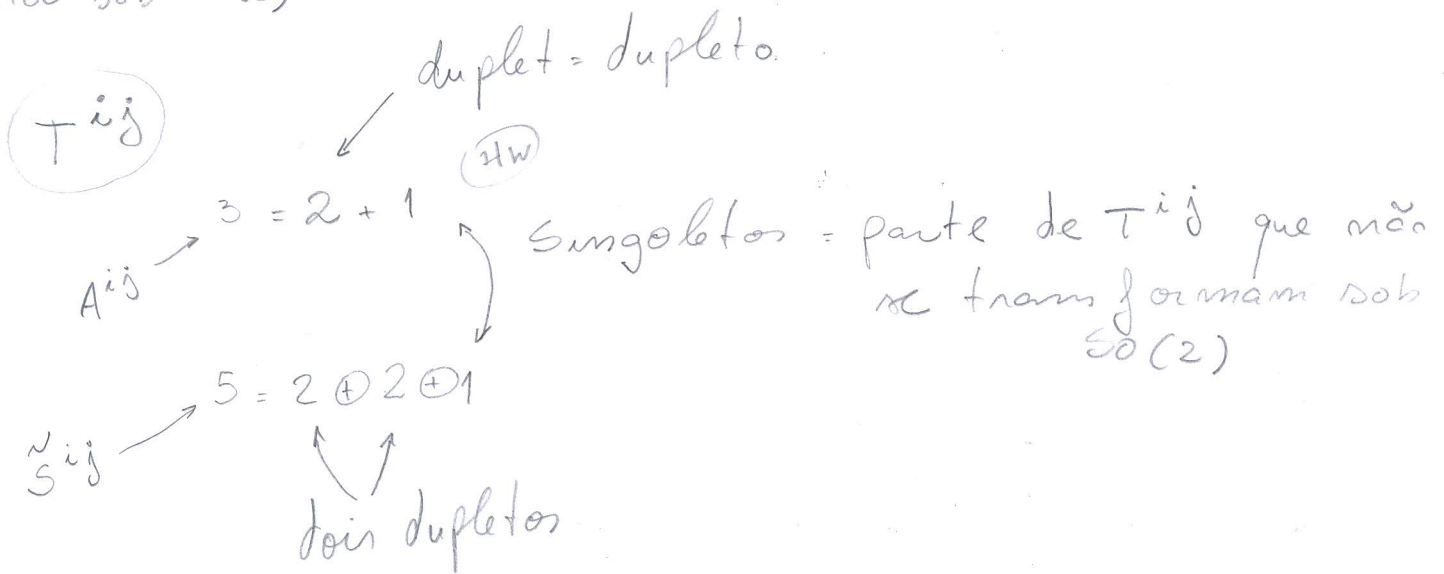 duplet = dupleto.
T^{ij}
HW
3 = 2 + 1
A^{ij}
Singoletos = parte de T^{ij} que não
se transformam sob
SO(2)
5 = 2 ⊕ 2 ⊕ 1
S̃^{ij}
dois dupletos